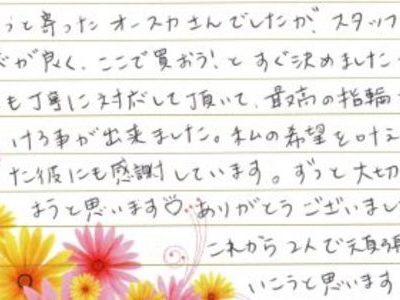 っと寄った オースカさんでしたが、スタッフ
が良く、ここで買おう!と すぐ決めました
も丁寧に対応して頂いて、最高の指輪
ける事が出来ました。私の希望を叶え
た彼にも感謝しています。ずっと大切
ようと思います♡ ありがとうございまし
これから 2人で頑張
いこうと思います